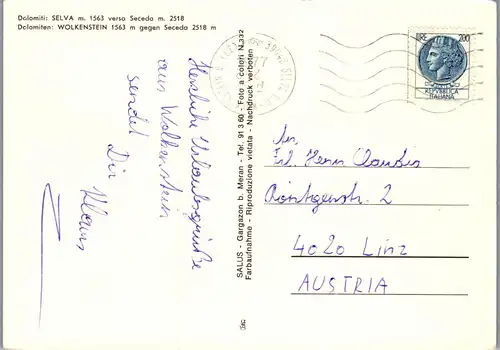 Dolomiti: SELVA m. 1563 verso Seceda m. 2518
Dolomiten: WOLKENSTEIN 1563 m gegen Seceda 2518 m
Herzliche Urlaubsgrüße
aus Wolkenstein
sendet Dir
Klaus
SALUS - Gargazon b. Meran - Tel. 91 3 60 - Foto a colori N.332
Farbaufnahme - Riproduzione vietata - Nachdruck verboten
LIRE 200
REPVBBLICA
ITALIANA
An
Claudia
Röntgenstr. 2
4020 Linz
AUSTRIA